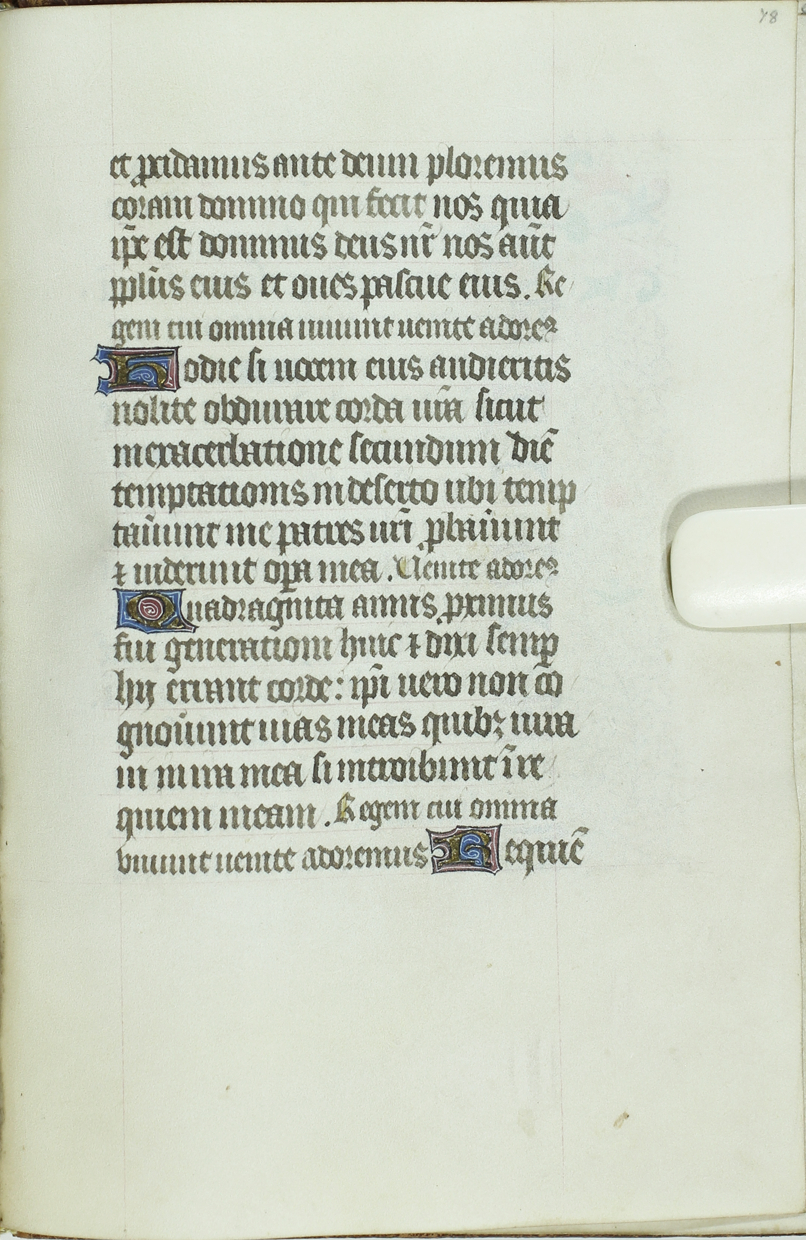 78
et p̱cidamus ante deum ploremus
coram domino qui fecit nos quia
ip̄e est dominus deus nr̄ nos aūt
pp̄lus eius et oues pascue eius. Re
gem cui omnia uiuunt uenite adorem̄
Hodie si uocem eius audieritis
nolite obdurare corda ura̅ sicut
inexacerbatione secundum diē
temptationis indeserto ubi temp
tau̅unt me patres uri̅ ꝓbau̅unt
⁊ uiderunt oꝑa mea. Uenite adorem̄
Quadraginta annis ꝓximus
fui generationi huic ⁊ dixi semꝑ
hij errant corde: ip̄i uero non co̅
gnou̅unt uias meas quibꝫ iura
ui in ira mea si introibunt i̅ re
quiem meam. Regem cui omnia
viuunt uenite adoremus Requiē